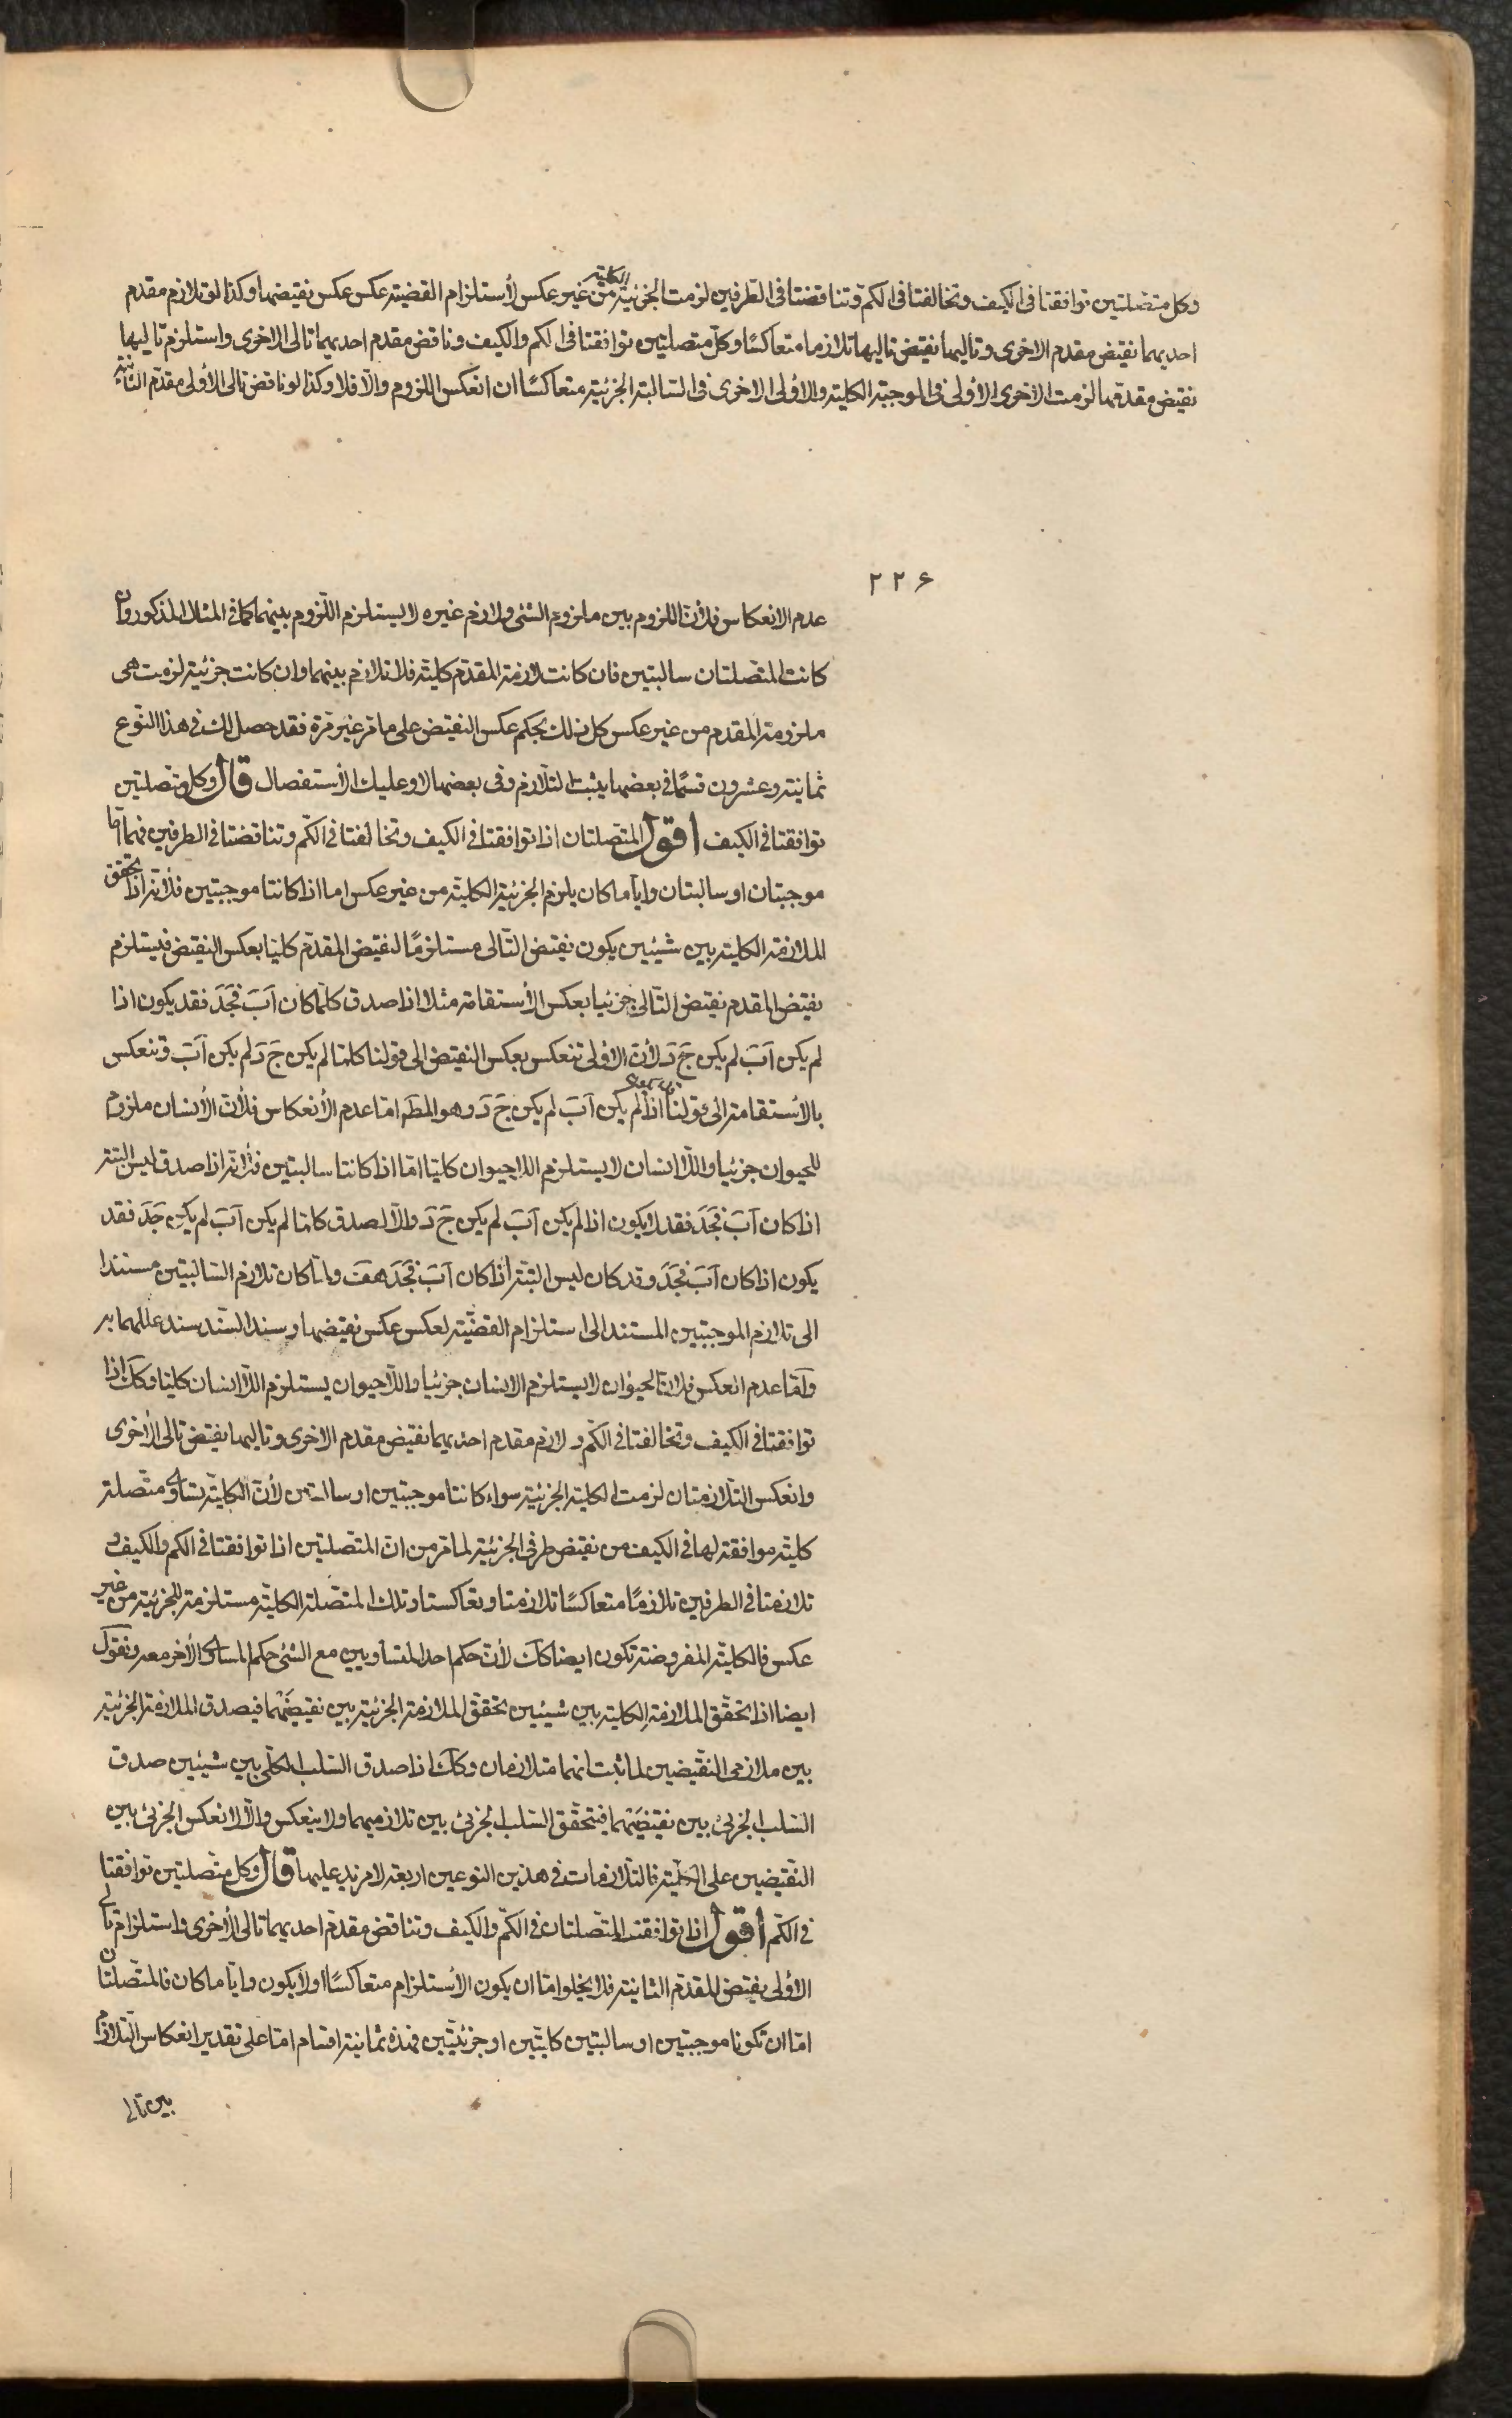 وكل متصلتين توافقتا فى الكيف وتخالفتا فى الكم وتناقضتا فى الطرفين لزمت الجزئية الكلية من غير عكس لأستلزام القضية عكس عكس نقيضها وكذا لو تلازم مقدم
احديهما نقيض مقدم الاخرى وتاليها نقيض تاليها تلازما متعاكسًا وكل متصلتين توافقتا فى الكم والكيف وناقض مقدم احديهما تالى الاخرى واستلزم تاليها
نقيض مقدمها لزمت الاخرى الاولى فى الموجبة الكلية والاولى الاخرى فى السالبة الجزئية متعاكسًا ان انعكس اللزوم والا فلا وكذا لو ناقض تالى الاولى مقدم الثانية
٢٢۶
عدم الانعكاس فلأن اللزوم بين ملزوم الشئ ولازم غيره لا يستلزم اللزوم بينهما كما فى المثال المذكور وان
كانت المتصلتان سالبتين فان كانت لازمة المقدم كلية فلا تلازم بينهما وان كانت جزئية لزمت هى
ملزومة المقدم من غير عكس كل ذلك بحكم عكس النقيض على ما مر غير مرة فقد حصل لك فى هذا النوع
ثمانية وعشرون قسمًا فى بعضها يثبت التلازم وفى بعضها لا وعليك الأستفصال قال وكل متصلتين
توافقتا فى الكيف اقول المتصلتان اذا توافقتا فى الكيف وتخالفتا فى الكم وتناقضتا فى الطرفين فهما اما
موجبتان او سالبتان وايا ما كان يلزم الجزئية الكلية من غير عكس اما اذا كانتا موجبتين فلأنه اذا تحقق
الملازمة الكلية بين شيئين يكون نقيض التالى مستلزمًا لنقيض المقدم كليا بعكس النقيض فيستلزم
نقيض المقدم نقيض التالى جزئيا بعكس الأستقامة مثلا اذا صدق كلما كان اَبَ فجَدَ فقد يكون اذا
لم يكن اَبَ لم يكن جَ دَ لأن الاولى تنعكس بعكس النقيض الى قولنا كلما لم يكن جَ دَ لم يكن اَبَ وتنعكس
بالأستقامة الى قولنا قد يكون اذا لم يكن اَبَ لم يكن جَ دَ وهو المط اما عدم الأنعكاس فلأن الأنسان ملزوم
للحيوان جزئيا واللا انسان لا يستلزم اللاحيوان كليا اما اذا كانتا سالبتين فلأنه اذا صدق ليس البتة
اذا كان اَبَ فجَدَ فقد لا يكون اذا لم يكن اَبَ لم يكن جَ دَ والا لصدق كلما لم يكن اَبَ لم يكن جَدَ فقد
يكون اذا كان اَبَ فجَدَ وقد كان ليس البتة اذا كان اَبَ فجَدَ هف ولما كان تلازم السالبتين مستندا
الى تلازم الموجبتين المستند الى استلزام القضية لعكس عكس نقيضها وسند السند سند عللهما به
واما عدم العكس فلان الحيوان لا يستلزم الانسان جزئيا واللاحيوان يستلزم اللا انسان كليا وكك اذا
توافقتا فى الكيف وتخالفتا فى الكم ولازم مقدم احديهما نقيض مقدم الاخرى وتاليها نقيض تالى الأخرى
وانعكس التلازمتان لزمت الكلية الجزئية سواء كانتا موجبتين او سالبتين لأن الكلية تساوى متصلة
كلية موافقة لها فى الكيف من نقيض طرفى الجزئية لما مر من ان المتصلتين اذا توافقتا فى الكم والكيف و
تلازمتا فى الطرفين تلازمًا متعاكسًا تلازمتا وتعاكستا وتلك المتصلة الكلية مستلزمة للجزئية من غير
عكس فالكلية المفروضة تكون ايضا كك لأن حكم احد المتساويين مع الشئ حكم المساوى الأخر معه ونقول
ايضا اذا تحقق الملازمة الكلية بين شيئين تحقق الملازمة الجزئية بين نقيضَيْهما فيصدق الملازمة الجزئية
بين ملازمى النقيضين لما ثبت انهما متلازمان وكك اذا صدق السلب الكلى بين شيئين صدق
السلب الجزئى بين نقيضَيْهما فيتحقق السلب الجزئى بين تلازميهما ولا ينعكس والا لانعكس الجزئى بين
النقيضين على الكلية فالتلازمات فى هذين النوعين اربعة لا مزيد عليها قال وكل متصلتين توافقتا
فى الكم اقول اذا توافقت المتصلتان فى الكم والكيف وتناقض مقدم احديهما تالى الأخرى واستلزام تالى
الأولى نقيض المقدم الثانية فلا يخلوا اما ان يكون الأستلزام متعاكسًا اولا يكون وايا ما كان فالمتصلتان
اما ان تكونا موجبتين او سالبتين كليتين او جزئيتين فهذه ثمانية اقسام اما على تقدير انعكاس التلازم
بين تالى